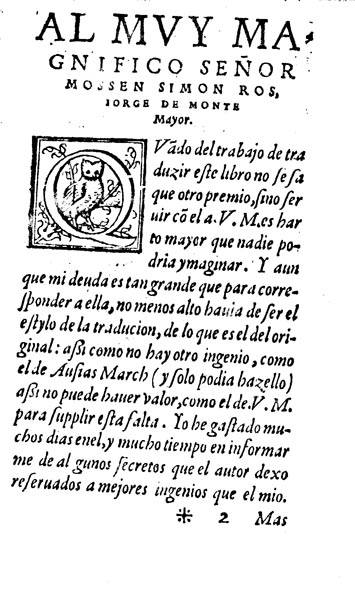 AL MVY MA-
GNIFICO SEÑOR
MOSSEN SIMON ROS,
IORGE DE MONTE
Mayor.
QVãdo del trabajo de tra
duzir eſte libro no ſe ſa
que otro premio, ſino ſer
uir cõ el a .V. M. es har
to mayor que nadie po-
dria ymaginar. Y aun
que mi deuda es tan grande que para corre-
ſponder a ella, no menos alto hauia de ſer el
eſtylo de la traducion, de lo que es el del ori-
ginal: aßi como no hay otro ingenio, como
el de Auſias March (y ſolo podia hazello)
aßi no puede hauer valor, como el de .V. M.
para ſupplir eſta falta. Yo he gaſtado mu-
chos dias enel, y mucho tiempo en informar
me de al gunos ſecretos que el autor dexo
reſeruados a mejores ingenios que el mio.
* 2 Mas